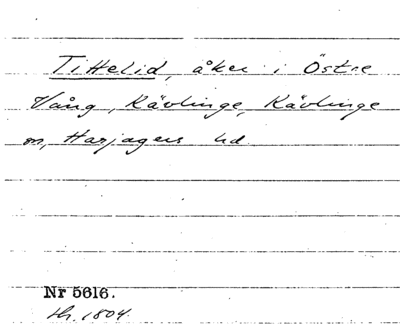 Tittelid, åker i Östre
Vång, Kävlinge, Kävlinge
sn, Harjagers hd.
Nr 5616.
Lh. 1804.